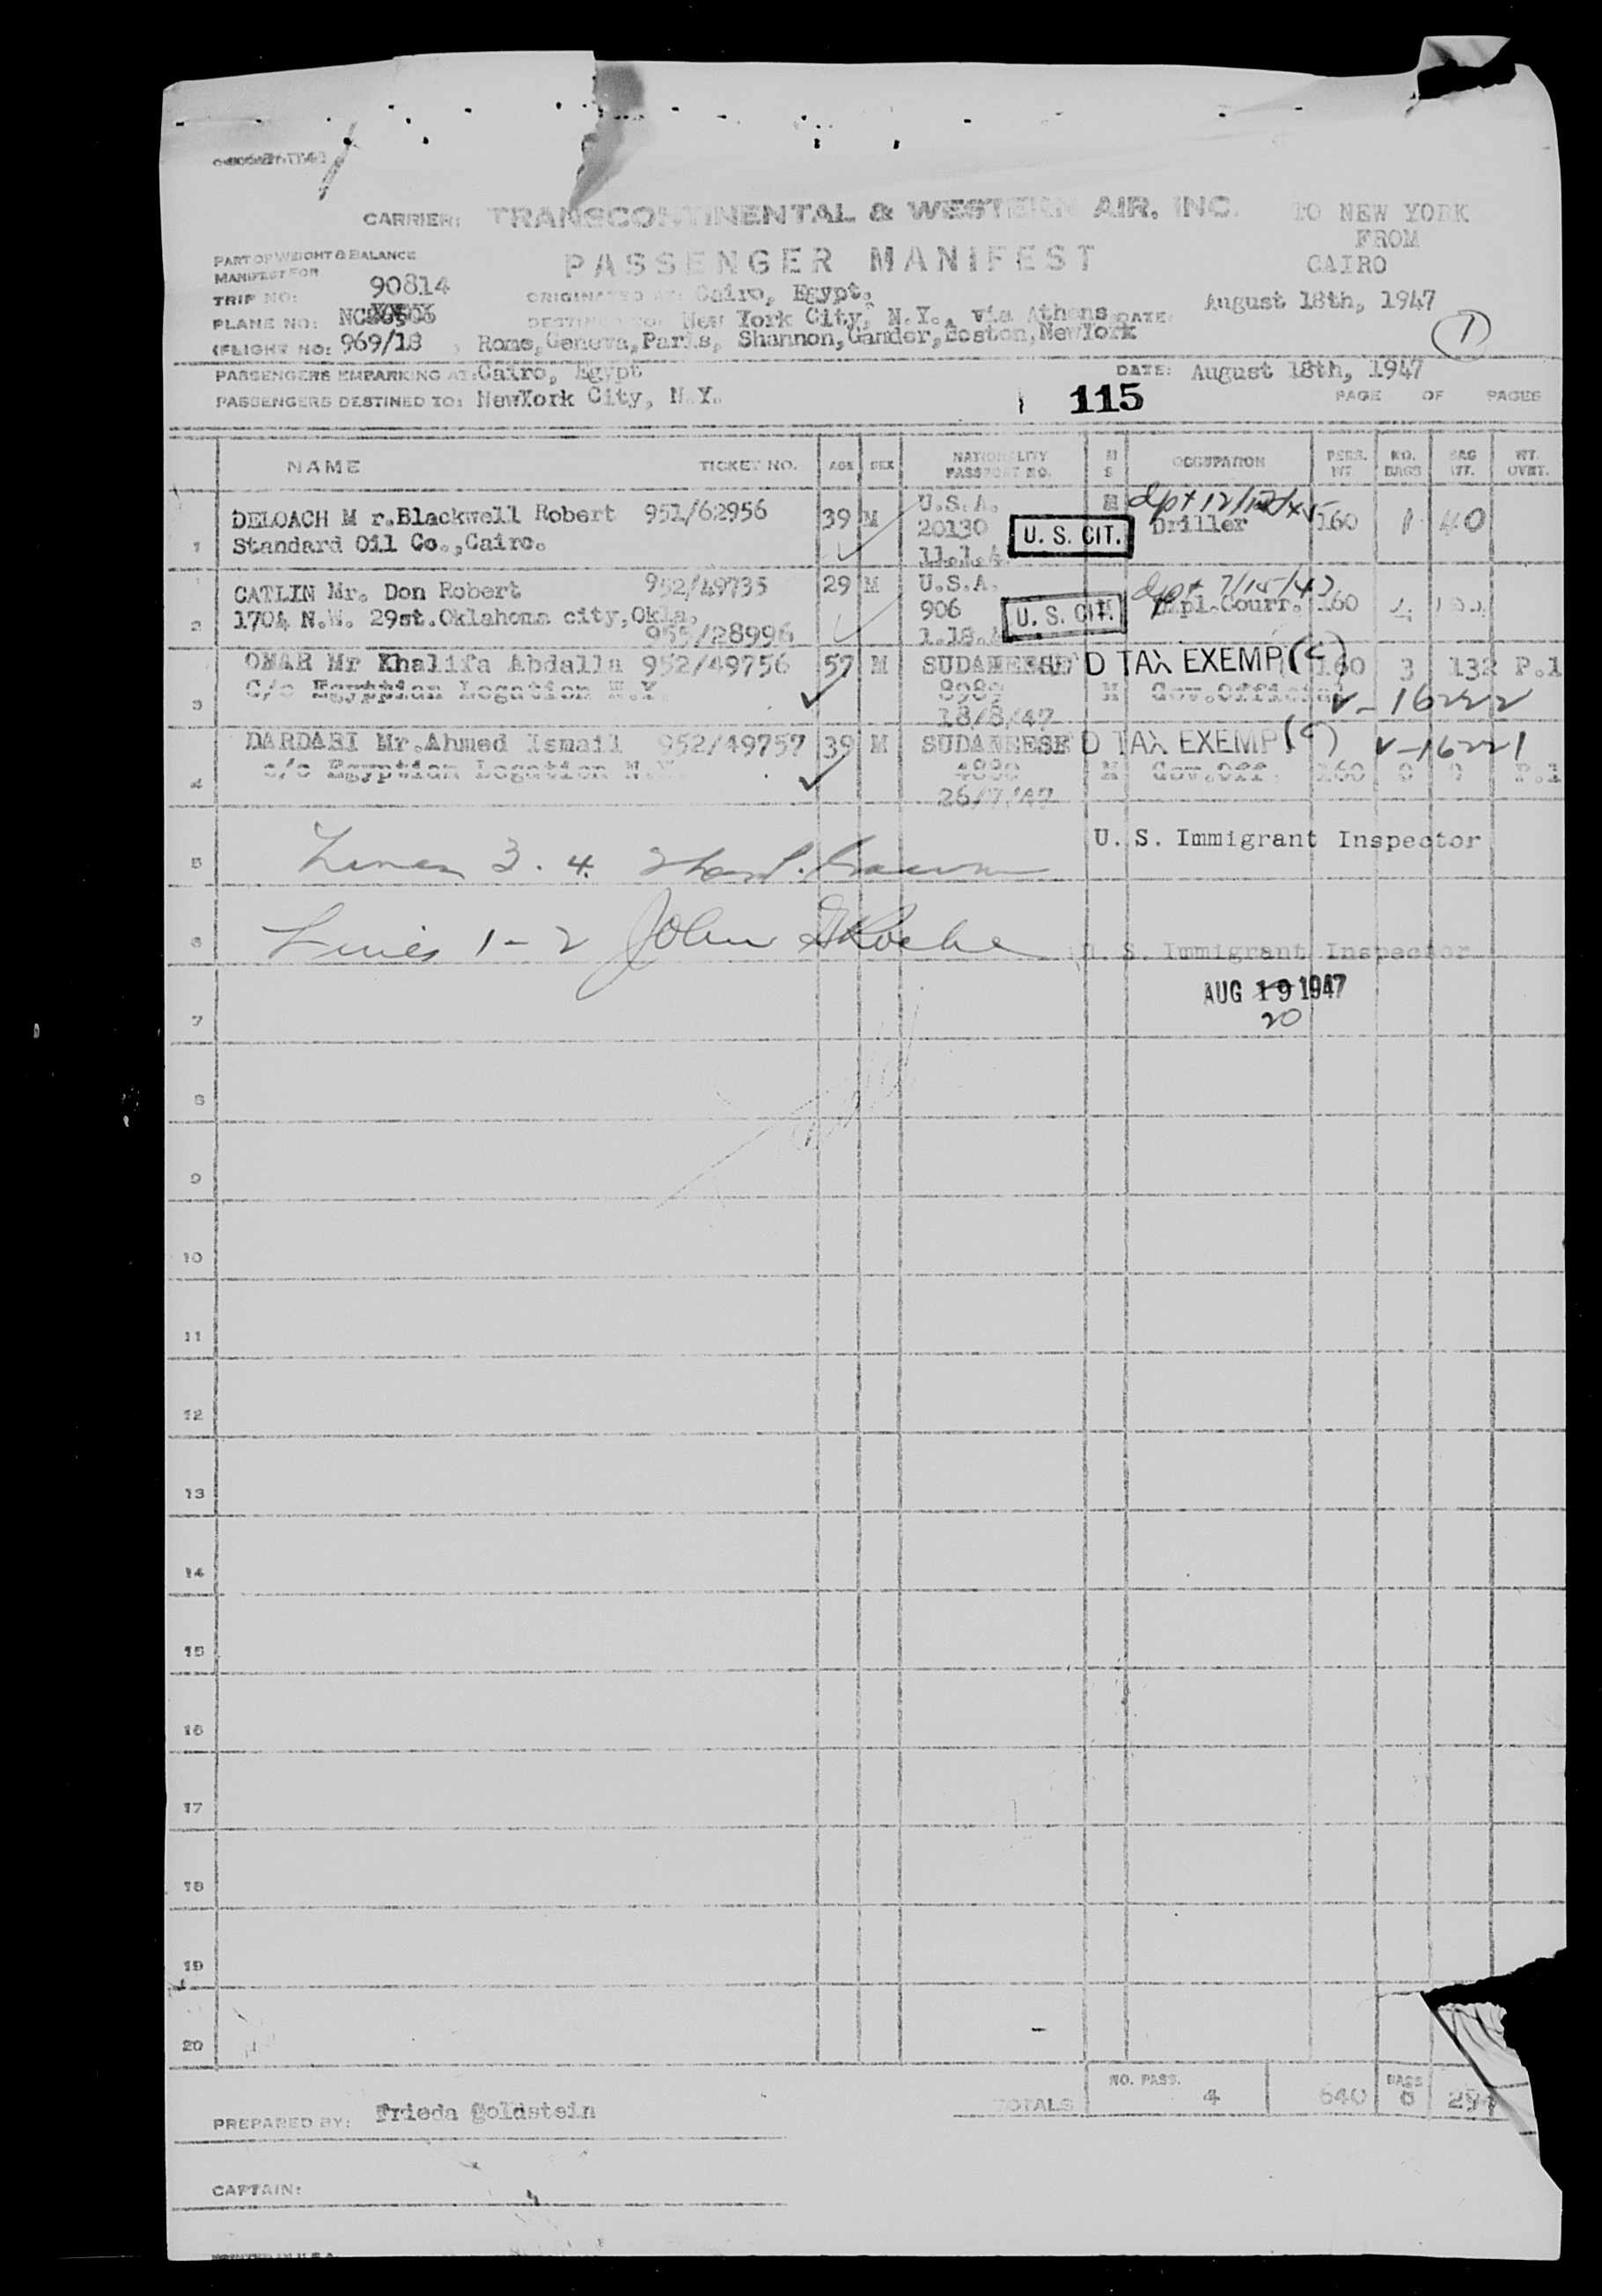 CARRIER: TRANSCONTINENTAL & WESTERN AIR, INC. TO NEW YORK
FROM
CAIRO
PASSENGER MANIFEST
PART OF WEIGHT & BALANCE
MANIFEST FOR
TRIP NO: 90814
ORIGINATED AT: Cairo, Egypt.
PLANE NO:
DESTINED TO: New York City, N.Y., via Athens DATE: August 18th, 1947
FLIGHT NO: 969/18 Rome, Geneva, Paris, Shannon, Gander, Boston, NewYork
1
PASSENGERS EMBARKING AT: Cairo, Egypt DATE: August 18th, 1947
PASSENGERS DESTINED TO: NewYork City, N.Y. 115 PAGE OF PAGES
NAME TICKET NO. AGE SEX NATIONALITY PASSPORT NO. M S OCCUPATION PERS. WT. NO. BAGS BAG WT. WT. OVRT.
1 DELOACH M r.Blackwell Robert 951/62956 39 M U.S.A. M
Standard Oil Co.,Cairo. 20130 U. S. CIT. Driller 160 1 40
2 CATLIN Mr. Don Robert 952/49735 29 M U.S.A. dpt 7/15/47
1704 N.W. 29st.Oklahoma city,Okla. 906 U. S. CIT. Dipl.Courr. 160
955/28996
3 OMAR Mr Khalifa Abdalla 952/49756 57 M SUDANEESE D TAX EXEMP (c) 160 3 132 P.1
C/o Egyptian Legation N.Y. 8989 M Gov.Official V-16222
18/8/47
4 DARDARI Mr.Ahmed Ismail 952/49757 39 M SUDANEESE D TAX EXEMP (c) V-16221
c/o Egyptian Legation N.Y. 4880 M Gov.Off. 160 0 0 P.1
26/7/47
5 Lines 3. 4. U. S. Immigrant Inspector
6 Lines 1-2 John G Roche U. S. Immigrant Inspector
AUG 19 1947
20
7
8
9
10
11
12
13
14
15
16
17
18
19
20
TOTALS NO. PASS. 4 640 BAGS 8
PREPARED BY: Frieda Goldstein
CAPTAIN:
PRINTED IN U.S.A.